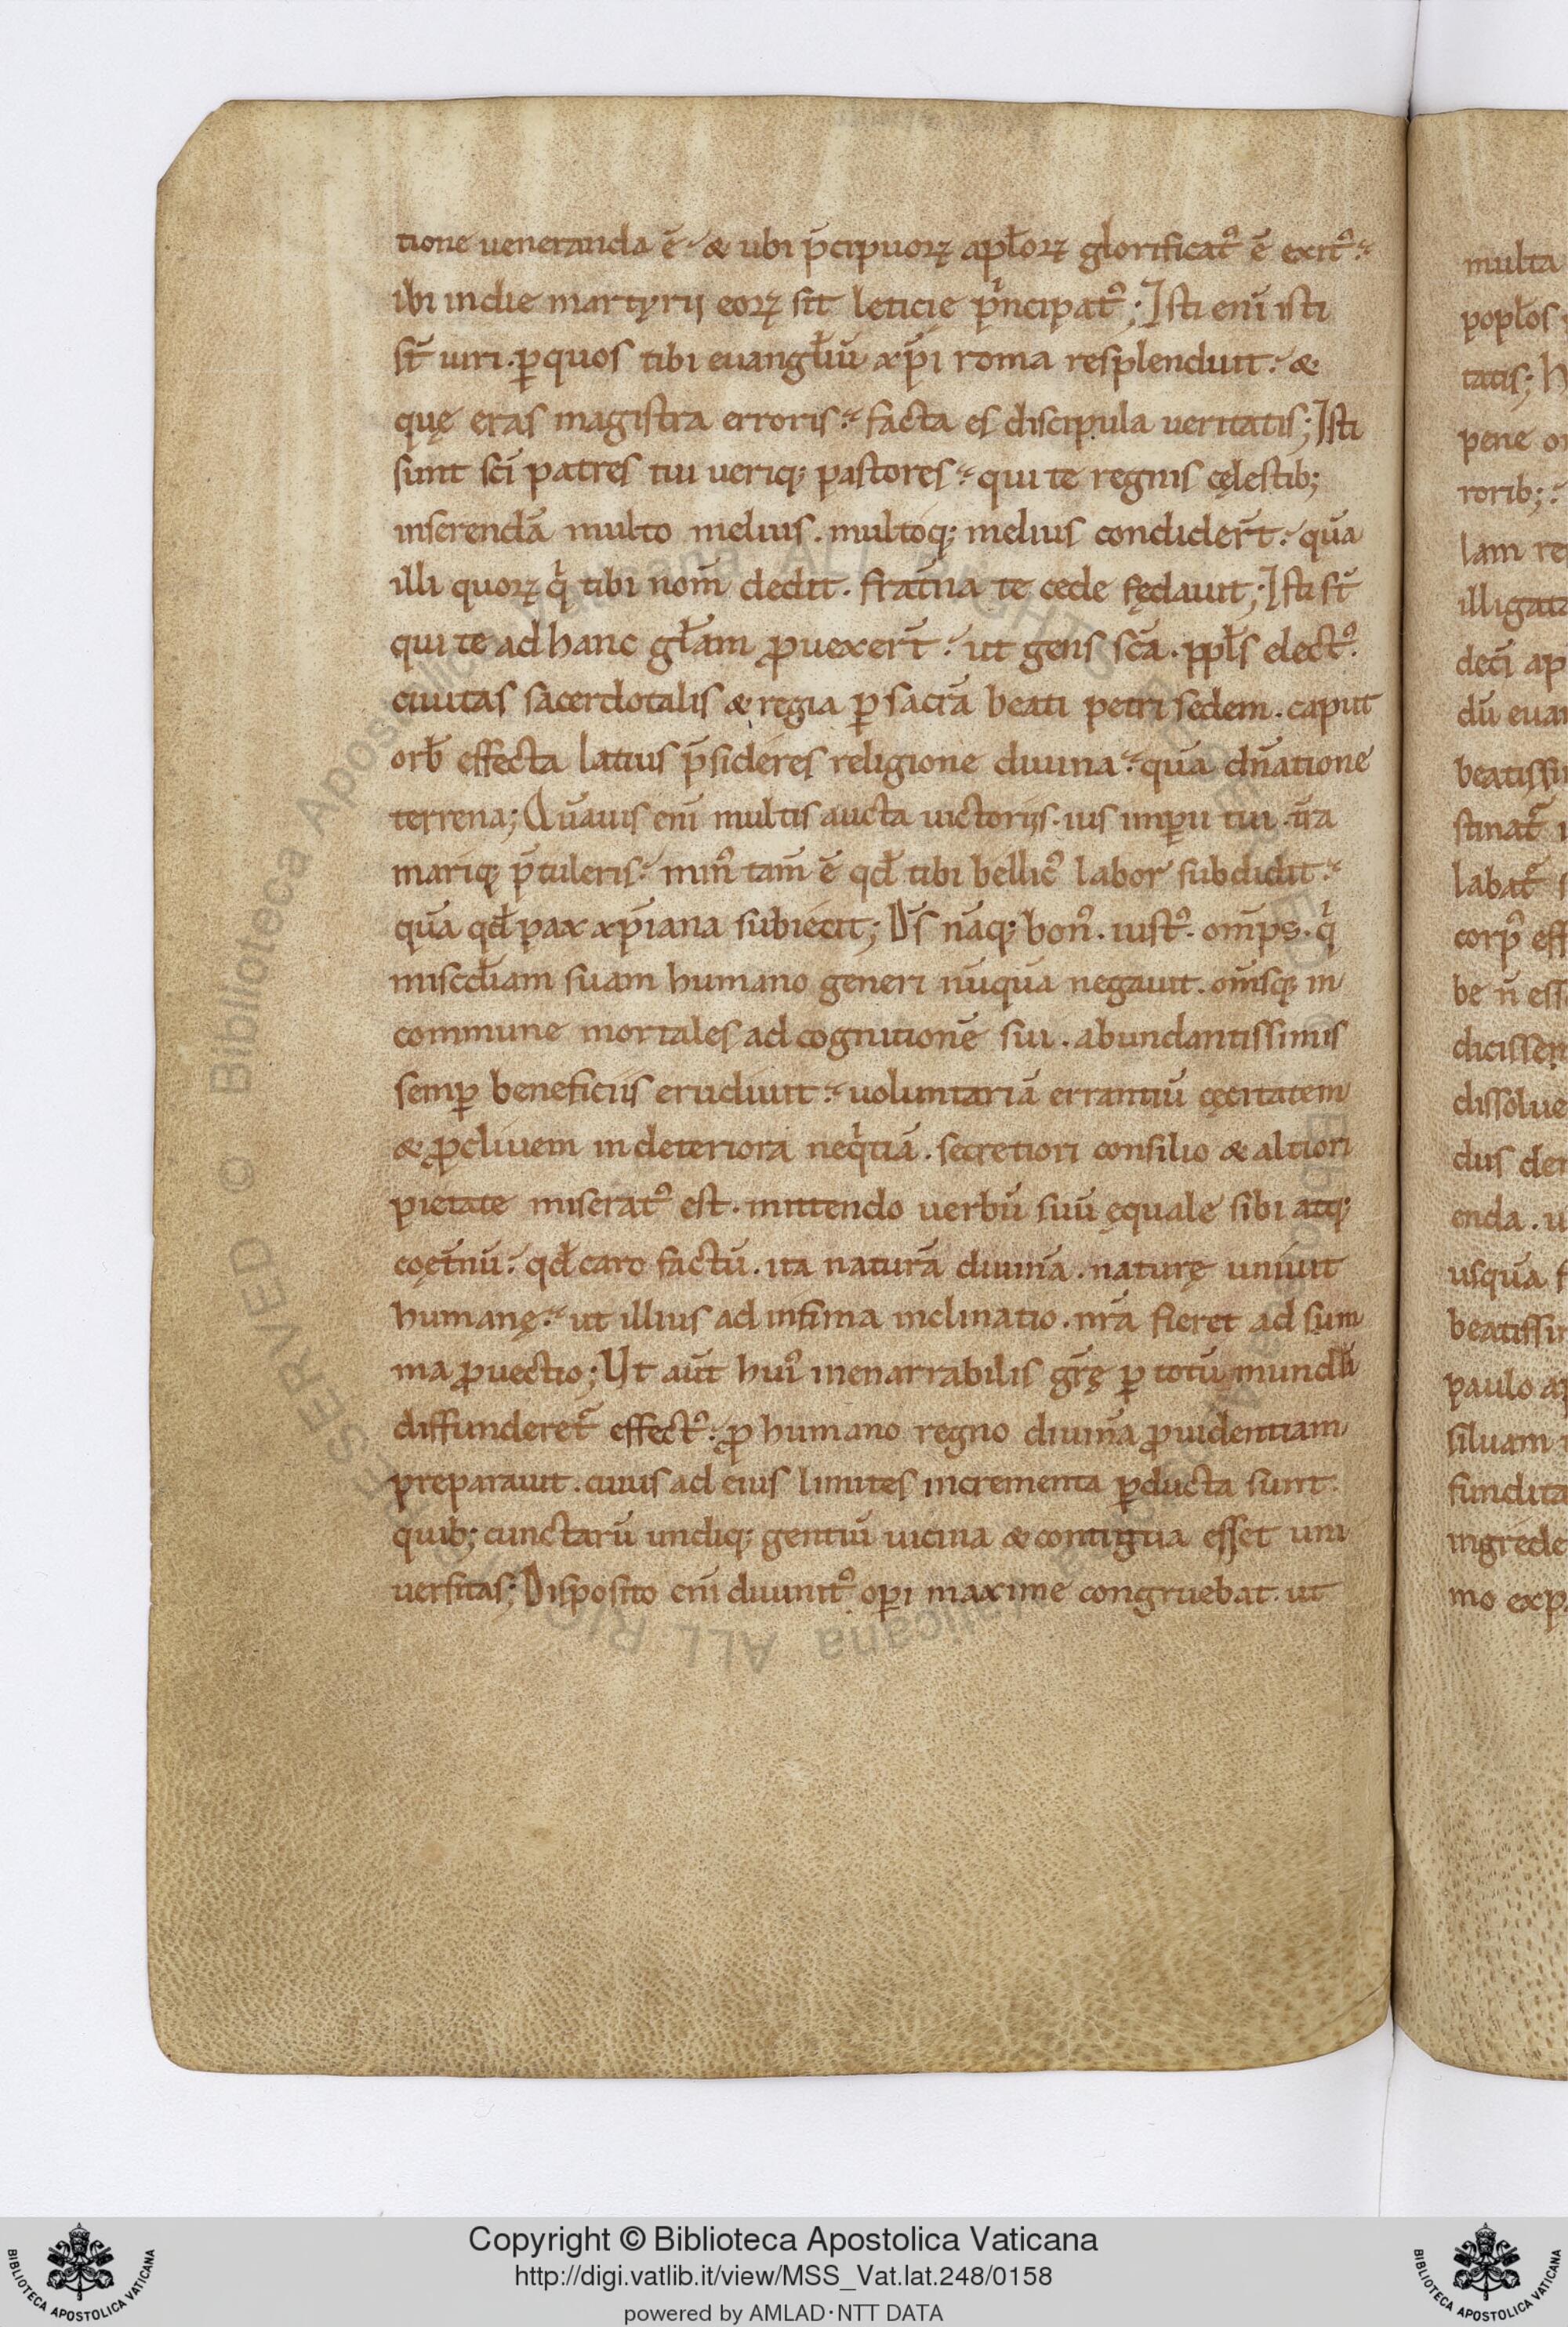 tione ueneranda ē. & ubi p̄cipuoꝝ apłoꝝ glorificatꝰ ē exitꝰ.
ibi in die martyrij eoꝝ sit leticie pͥncipatꝰ; Isti eni̅ isti
st̄ uiri. ꝑ quos tibi euangłiū xp̄i roma resplenduit. &
quę eras magistra erroris. facta es discipula ueritatis; Isti
sunt sc̄i patres tui ueriq; pastores. qui te regnis cęlestib;
inserendā multo melius. multoq; melius condider̄t. quā
illi quoꝝ qͥ tibi nom̄ dedit. frat̄na te cede fędauit; Isti st̄
qui te ad hanc gł̄am ꝓuexer̄t. ut gens sc̄a. ppl̄s electꝰ.
ciuitas sacerdotalis & regia ꝑ sacrā beati petri sedem. caput
orb̄ effecta latius p̄sideres religione diuina. quā dn̄atione
terrena; Quāuis eni̅ multis aucta uictorijs. ius imꝑii tui t̄ra
mariq; p̄tuleris. minꝰ tam̄ ē qd̄ tibi bellicꝰ labor subdidit.
quā qd̄ pax xp̄iana subiecit; Ds̄ nāq; bonꝰ. iustꝰ. om̄ps. qͥ
miscd̄iam suam humano generi nūquā negauit. om̄isq; in
commune mortales ad cognitionē sui. abundantissimis
semꝑ beneficiis erudiuit. uoluntariā errantiū cęcitatem
& ꝓcliuem in deteriora neqͥtiā. secretiori consilio & altiori
pietate miseratꝰ est. mittendo uerbū suū ęquale sibi atq;
coęt̄nū. qd̄ caro factū. ita naturā diuinā. naturę uniuit
humanę. ut illius ad infima inclinatio. nr̄a fieret ad sum
ma ꝓuectio; Ut aūt huiꝰ inenarrabilis gr̄ę ꝑ totū mundū
diffunderet̄ effectꝰ. ꝓ humano regno diuinā ꝓuidentiam
preparauit. cuius ad eius limites incrementa ꝑducta sunt.
quib; cunctarū undiq; gentiū uicina & contigua esset uni
uersitas; Disposito eni̅ diuinitꝰ oꝑi maxime congruebat. ut
multa
popłos
tatis; h
pene o
rorib;
lam re
illigata
deci̅ ap
dū euan
beatissi
stinat̄ i
labat̄
corpꝰ eff
be n̄ ess
dicissem
dissolue
dus de
enda. u
usquā f
beatissi
paulo a
siluam
fundita
ingrede
mo exp
© Biblioteca Apostolica Vaticana ALL RIGHTS RESERVED
BIBLIOTECA APOSTOLICA VATICANA
Copyright © Biblioteca Apostolica Vaticana
http://digi.vatlib.it/view/MSS_Vat.lat.248/0158
powered by AMLAD·NTT DATA
BIBLIOTECA APOSTOLICA VATICANA